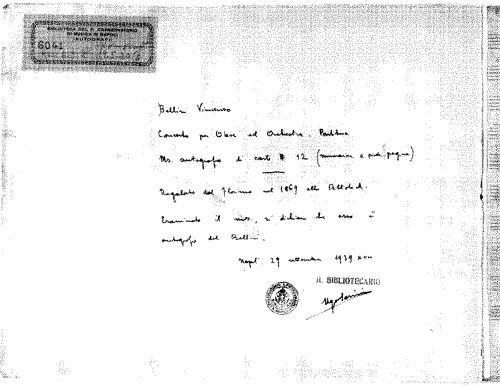 BIBLIOTECA DEL R. CONSERVATORIO
DI MUSICA DI NAPOLI
AUTOGRAFI
6041
Bellini Vincenzo
Concerto per Oboe ed Orchestra. Partitura
Ms. autografo di carte 12 (numerate a piè pagina)
Regalato dal Florimo nel 1869 alla
Esaminato il ms, si dichiara che esso è
autografo del Bellini.
Napoli 29 settembre 1939 XVII
IL BIBLIOTECARIO